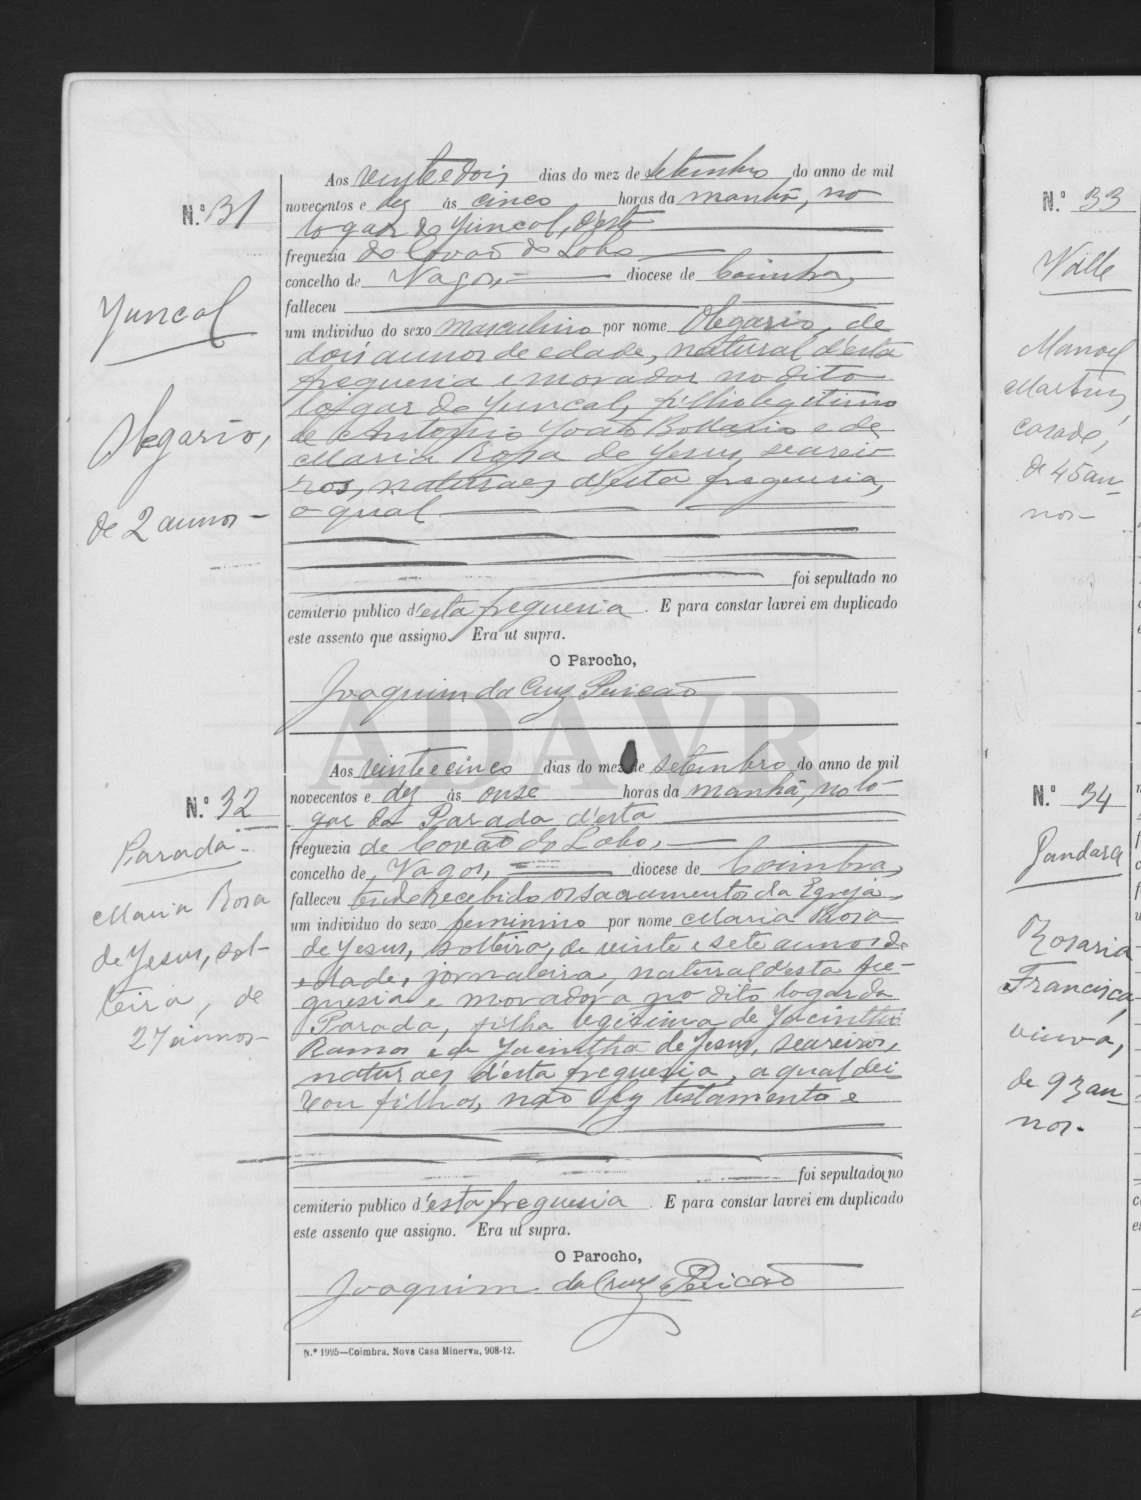 N.º 31
Juncal
Olegario,
de 2 annos -
Aos vinte e dois dias do mez de Setembro do anno de mil
novecentos e dez ás cinco horas da manhã, no
logar do Juncal, d'esta
freguezia do Covão do Lobo
concelho de Vagos, diocese de Coimbra,
falleceu
um individuo do sexo masculino por nome Olegario, de
dois annos de edade, natural d'esta
freguesia e morador no dito
logar do Juncal, filho legitimo
de Antonio João e de
Maria Rosa de Jesus, searei-
ros, naturaes d'esta freguesia,
o qual
foi sepultado no
cemiterio publico d'esta freguesia. E para constar lavrei em duplicado
este assento que assigno. Era ut supra.
O Parocho,
Joaquim da Cruz Pericão
N.º 32
Parada -
Maria Rosa
de Jesus, sol-
teira, de
27 annos -
Aos vinte e cinco dias do mez de setembro do anno de mil
novecentos e dez ás onse horas da manhã, no lo-
gar da Parada d'esta
freguezia de Covão do Lobo,
concelho de Vagos, diocese de Coimbra,
falleceu tendo recebido os sacramentos da Egreja,
um individuo do sexo feminino por nome Maria Rosa
de Jesus, solteira, de vinte e sete annos de
edade, jornaleira, natural d'esta fre-
guesia e moradora no dito logar da
Parada, filha legitima de Jacintho
Ramos e de Jacintha de Jesus, seareiros,
naturaes d'esta freguesia, a qual dei
xou filhos, não fez testamento e
foi sepultada no
cemiterio publico d'esta freguesia. E para constar lavrei em duplicado
este assento que assigno. Era ut supra.
O Parocho,
Joaquim da Cruz Pericão
N.º 1995—Coimbra, Nova Casa Minerva, 908-12.
ADAVR
N.º 33
Valle
Manoel
Martins,
casado,
de 45 an-
nos -
N.º 34
Gandara
Rosaria
Francisca,
viuva,
de 93 an-
nos.